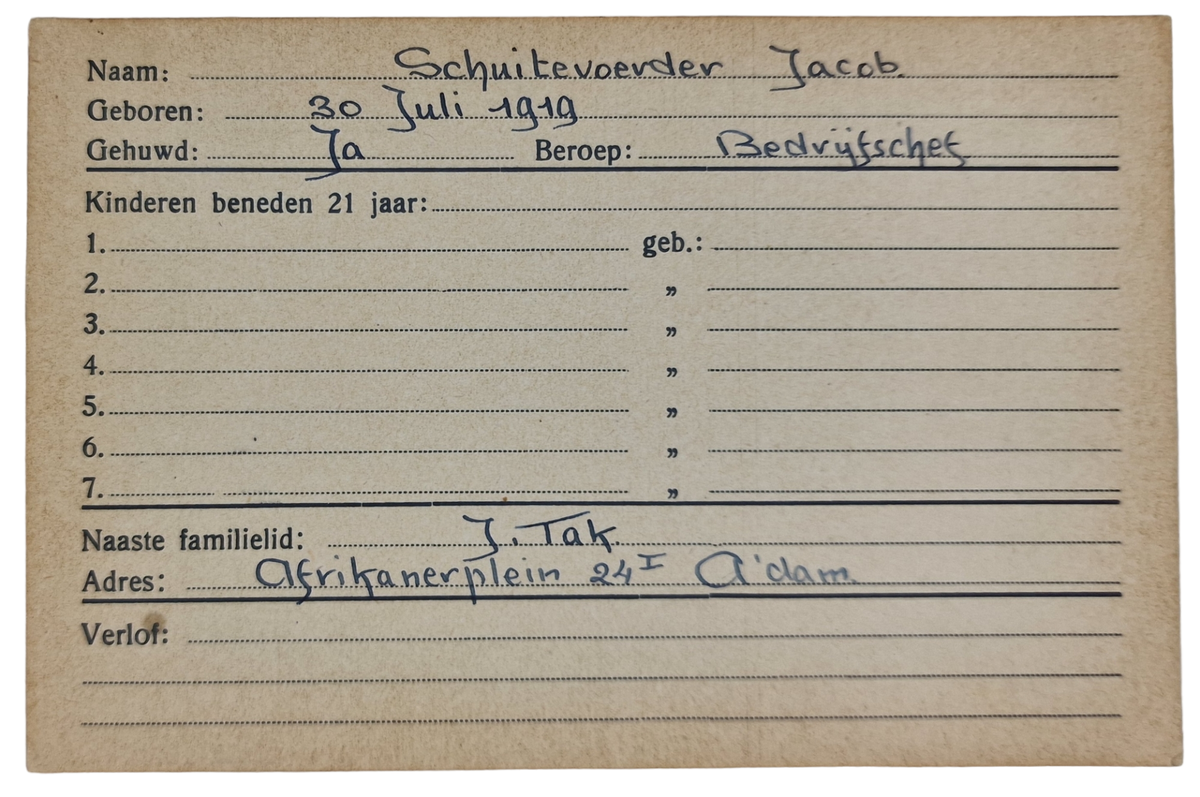 Naam: Schuitevoerder Jacob.
Geboren: 30 Juli 1919
Gehuwd: Ja Beroep: Bedrijfschef
Kinderen beneden 21 jaar:
1. geb.:
2. „
3. „
4. „
5. „
6. „
7. „
Naaste familielid: J. Tak.
Adres: Afrikanerplein 24 I A'dam.
Verlof: